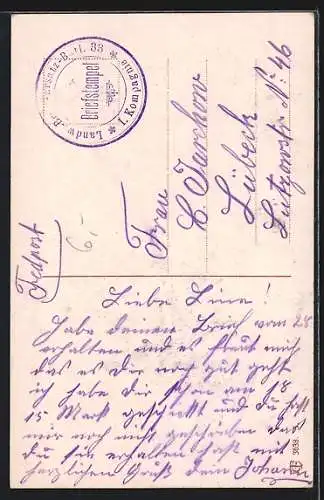 Landw. Br. Ersatz-Batl. 33 * 1. Kompagnie *
Briefstempel
Feldpost
6,-
Frau
C Jarchow
Lübeck
Lützowstr No: 46
Liebe Line!
Habe deinen Brief vom 28
erhalten und es freut mich
das es dir noch gut geht
ich habe dir schon am 18
15 Mark geschickt und du hast
mir noch nicht geschrieben das
du sie erhalten hast mit
herzlichen Gruß dein Johann
3638